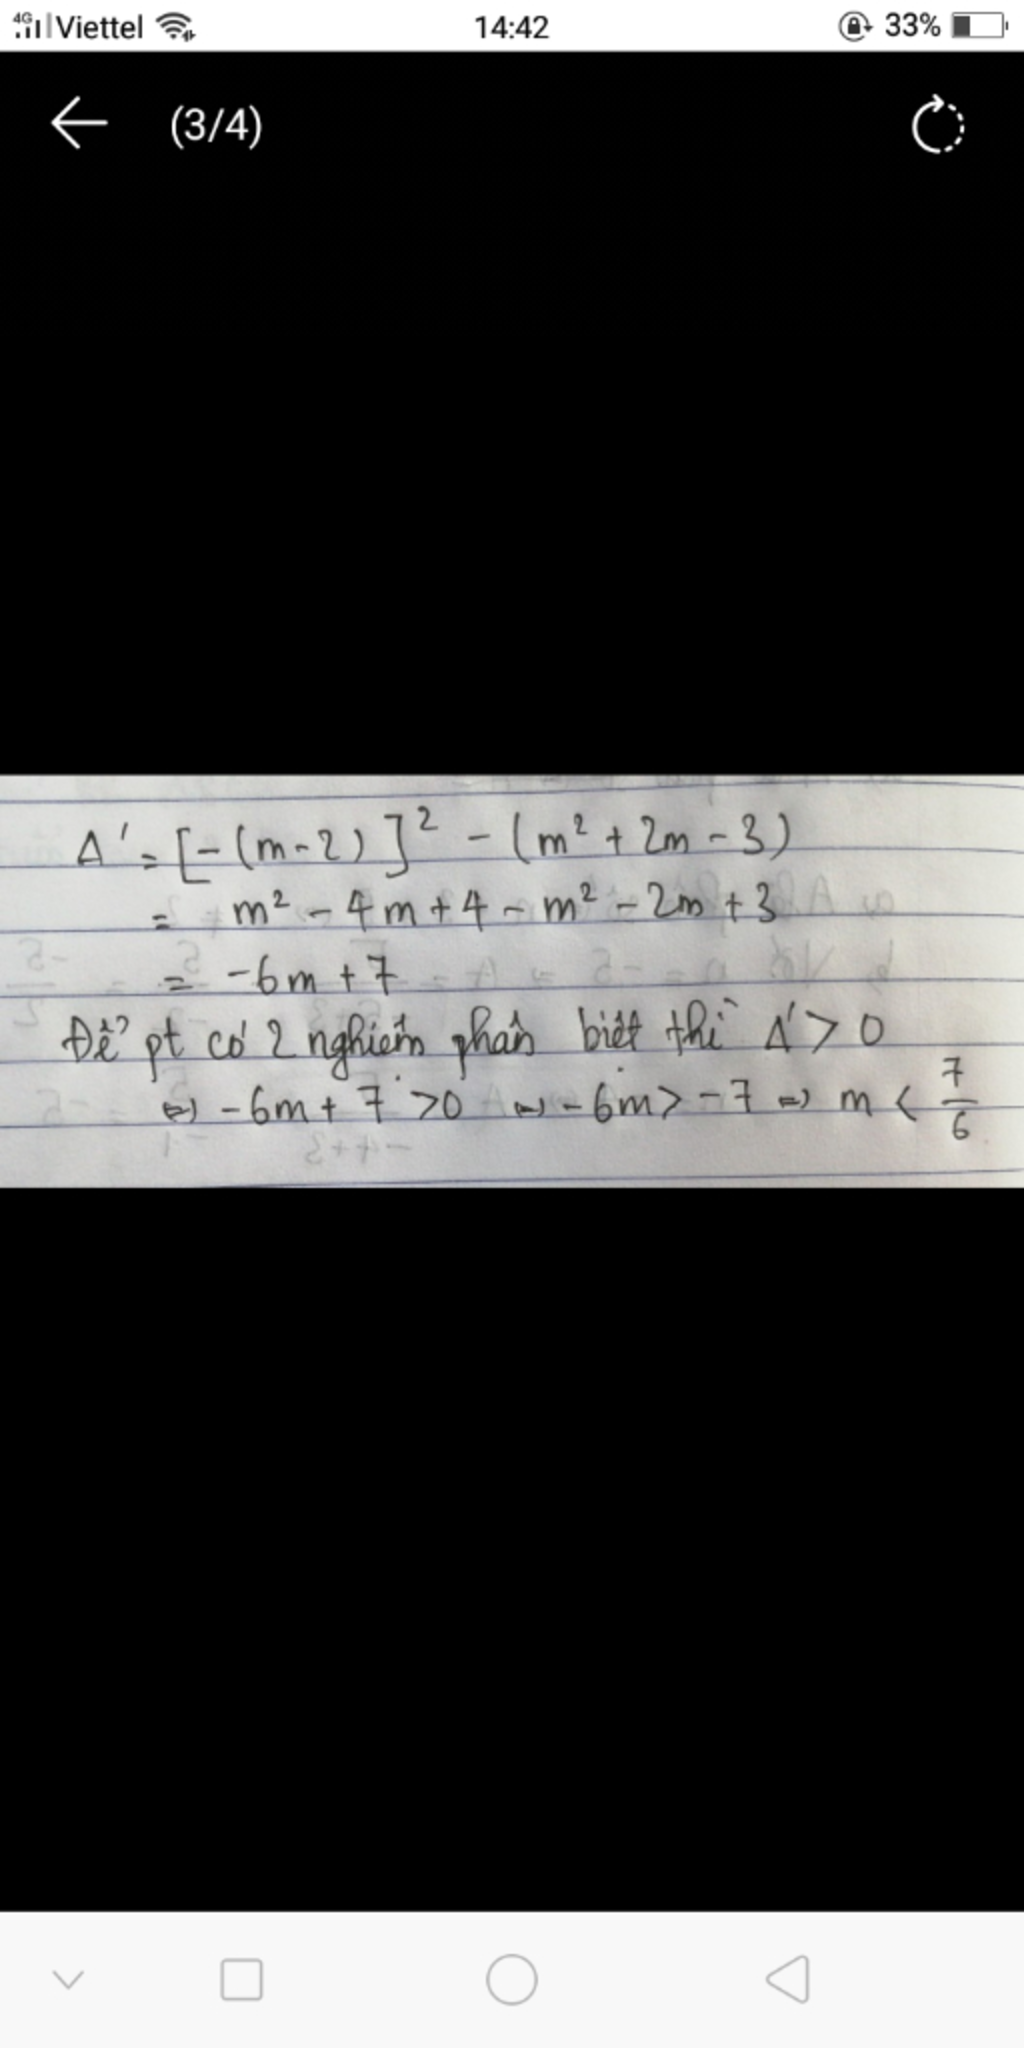 4G Viettel 14:42 33%
(3/4)
Δ' = [-(m-2)]² - (m² + 2m - 3)
= m² - 4m + 4 - m² - 2m + 3
= -6m + 7
Để pt có 2 nghiệm phân biệt thì Δ' > 0
⇔ -6m + 7 > 0 ⇔ -6m > -7 ⇔ m < 7/6